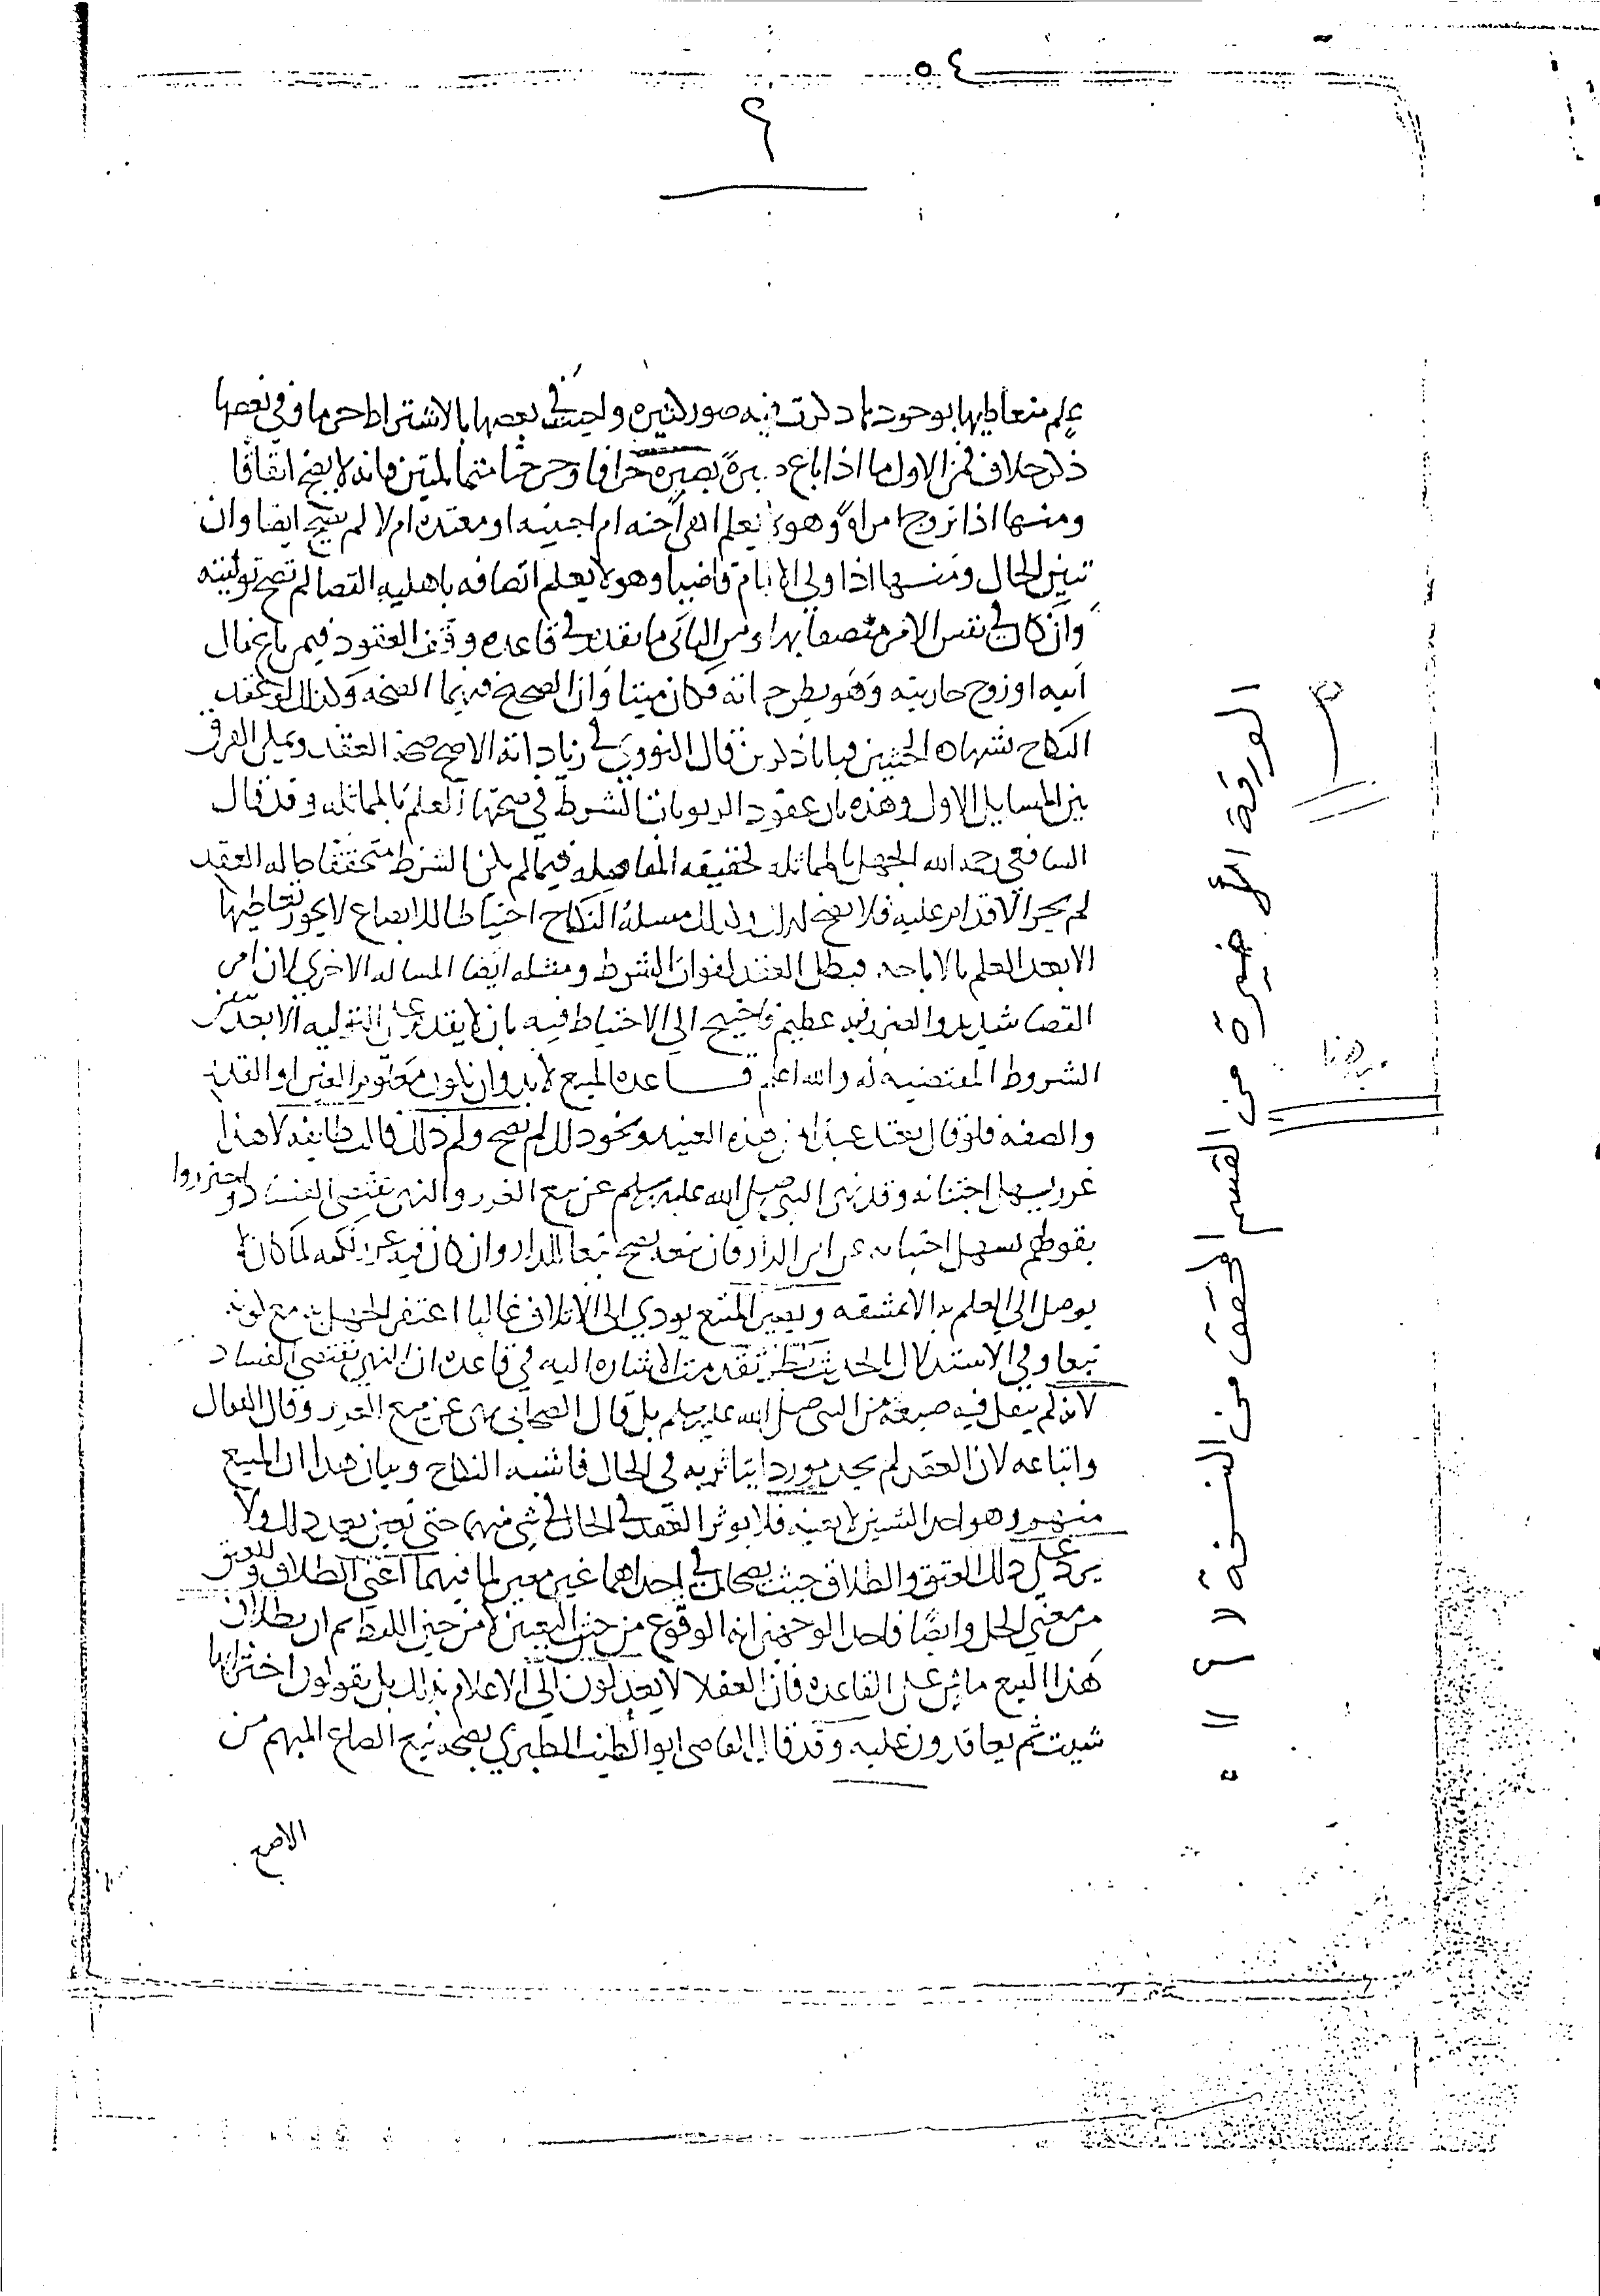 ٥٤
٩
علم متعاطيها بوجودها ذكرت فيه صور كثيره ولحيث في بعضها بالاشتراط جزما وفي بعضها
ذلك خلاف فمن الاول ما اذا باع صبرة بصبرة جزافا وخرجتا متماثلتين فانه لا يصح اتفاقا
ومنها اذا تزوج امراة وهو لا يعلم اهي اخته ام اجنبيه او معتده ام لا لم يصح ايضا وان
تبين الحال ومنها اذا ولي الامام قاضيا وهو لا يعلم اتصافه باهليه القضا لم تصح توليته
وان كان في نفس الامر متصفا بها ومن الثاني ما تقدم في قاعده وقف العقود فيمن باع مال
ابيه او زوج جاريته وهو يظن حياته فكان ميتا وان الصحيح فيهما الصحه وكذلك لو عقد
النكاح بشهاده الخنثيين فبانا ذكرين قال النووي في زياداته الاصح صحه العقد ويمكن الفرق
بين المسايل الاول وهذه بان عقود الربويات الشرط في صحتها العلم بالمماثله وقد قال
الشافعي رحمه الله الجهل بالمماثله كحقيقه المفاضله فما لم يكن الشرط متحققا حاله العقد
لم يجز الاقدام عليه فلا يصح لذلك وكذلك مسله النكاح احتياطا للابضاع لا يجوز تعاطيها
الا بعد العلم بالاباحه فبطل العقد لفوات الشرط ومثله ايضا المساله الاخري لان امر
القضا شديد والضرر فيه عظيم فاحتيج الي الاحتياط فيه بان لا يقدم علي التوليه الا بعد تبين
الشروط المقتضيه له والله اعلم قاعده المبيع لابد وان يكون معلوم العين او القدر
والصفه فلو قال بعتك عبدا من هذه العبيد ونحو ذلك لم يصح ولم ذلك قالت طايفه لان هذا
غرر يسهل اجتنابه وقد نهي النبي صلي الله عليه وسلم عن بيع الغرر والنهي يقتضي الفساد واحترزوا
بقولهم يسهل اجتنابه عن اس الدار فان بيعه يصح تبعا للدار وان كان فيه غرر لكنه لما كان لا
يوصل الي العلم به الا بمشقه وتعيير المبيع يودي الي الاتلاف غالبا اغتفر الجهل به مع كونه
تبعا وفي الاستدلال بالحديث نظر تقدمت الاشاره اليه في قاعده ان النهي يقتضي الفساد
لانه لم ينقل فيه صيغه من النبي صلي الله عليه وسلم بل قال الصحابي نهي عن بيع الغرر وقال القفال
واتباعه لان العقد لم يجد موردا يتاثر به في الحال فاشبه النكاح وبيان هذا ان المبيع
منهم وهو احد الشيين لا بعينه فلا يوثر العقد في الحال في شي منهما حتي يعين بعد ذلك ولا
يرد علي ذلك العتق والطلاق حيث يصحان في احداهما غير معين لما فيهما اعني الطلاق والعتق
من معني الحل وايضا فاحد الوجهين ان الوقوع من حين التعيين لا من حين اللفظ ثم ان بطلان
هذا البيع ماش علي القاعده فان العقلا لا يعدلون الي الاعلام بذلك بل يقولون اختر ايها
شيت ثم يعاقدون عليه وقد قال القاضي ابو الطيب الطبري يصحه بيع الصاع المبهم من
الاصح
الورقة المتغيرة من القسم المحقق من النسخة (س)
من هنا